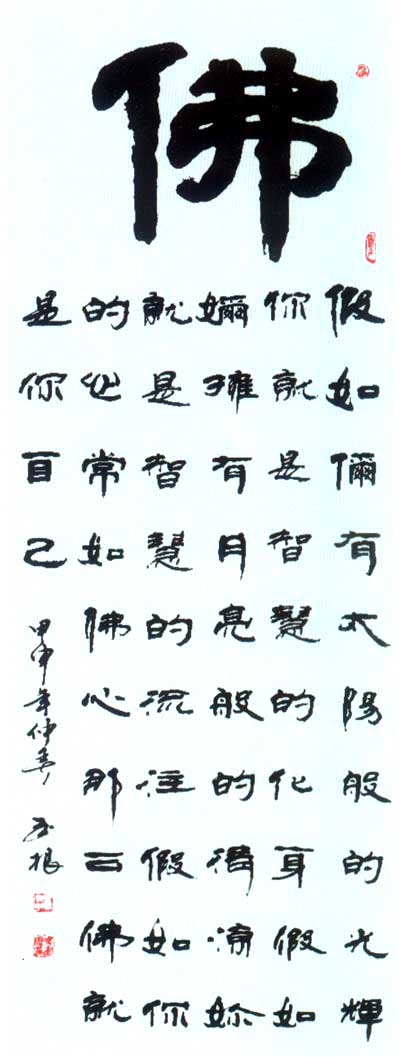 佛
假如儞有太陽般的光輝
你就是智慧的化身假如
嬭擁有月亮般的妳
就是智慧的流注假如你
的心常如佛心那佛就
是你自己
甲申年仲春
根